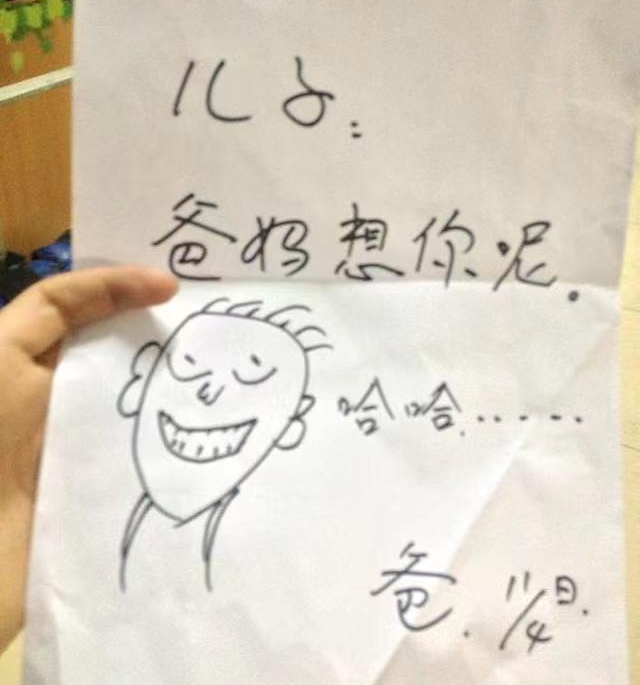 儿子：
爸妈想你呢.
哈哈......
爸. 11/4日.